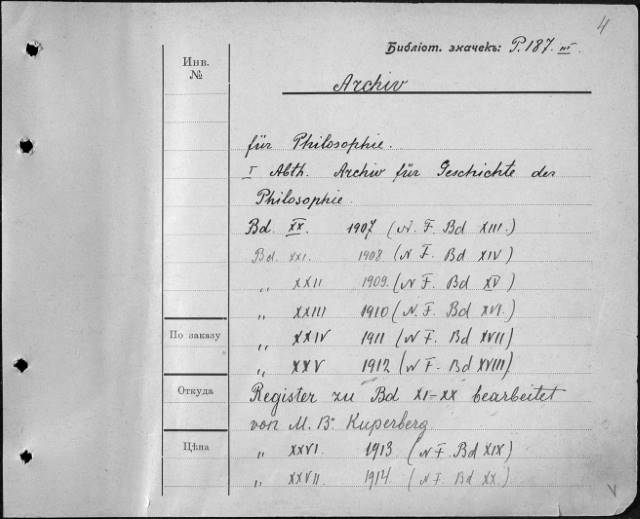 4
Библіот. значекъ: P.187. III.
Инв.
№
Archiv
für Philosophie.
I Abth. Archiv für Geschichte der
Philosophie.
Bd. XX. 1907 (N. F. Bd XIII.)
Bd. XXI. 1908 (N F. Bd XIV)
„ XXII 1909. (N F. Bd XV)
„ XXIII 1910 (N. F. Bd XVI.)
По заказу „ XXIV 1911 (N F. Bd XVII)
„ XXV 1912 (N F- Bd XVIII)
Откуда Register zu Bd XI-XX bearbeitet
von M. B. Kuperberg
Цѣна „ XXVI 1913 (N F. Bd XIX)
„ XXVII 1914 (N F. Bd XX.)
V